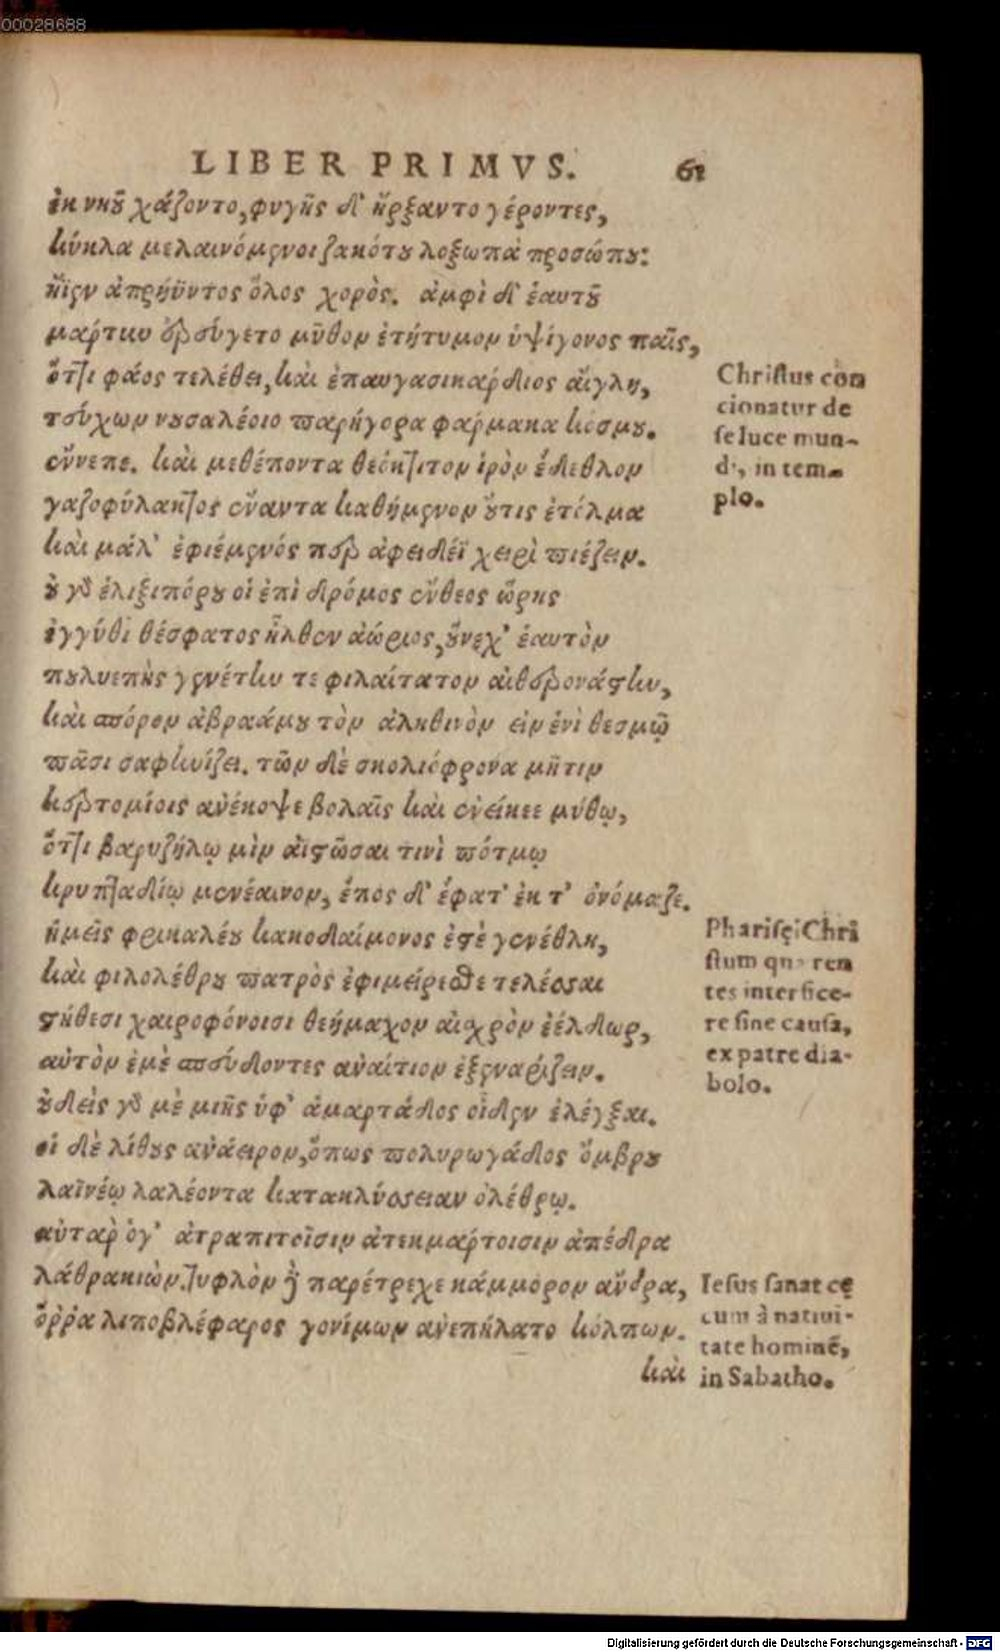 00028688
LIBER PRIMVS. 61
ἐκ νηοῦ χάζοντο, φυγῆς δ' ἤρξαντο γέροντες,
κύκλα μελαινόμενοι ζακότου λοξωπὰ προσώπου:
ἤϊεν ἀπρήϋντος ὅλος χορὸς. ἀμφὶ δ' ἑαυτοῦ
μάρτυν μῦθον ἐτήτυμον ὑψίγονος παῖς,
ὅττι φάος τελέθει, καὶ ἐπαυγασικάρδιος αἴγλη,
τεύχων νουσαλέοιο παρήγορα φάρμακα κόσμου.
ἔννεπε. καὶ μεθέποντα θεόκτιτον ἱρὸν ἔδεθλον
γαζοφύλακτος ἔναντα καθήμενον οὔτις ἐτόλμα
καὶ μάλ' ἐφιέμενός περ ἀφειδέϊ χειρὶ πιέζειν.
οὐ γὰρ ἑλιξιπόρου οἱ ἐπὶ δρόμος ἔνθεος ὥρης
ἐγγύθι θέσφατος ἦλθεν ἀώριος, οὕνεχ' ἑαυτὸν
πουλυεπὴς γενέτην τε φιλαίτατον αἰθερονάστην,
καὶ σπόρον ἀβραάμου τὸν ἀληθινὸν εἰν ἑνὶ θεσμῷ
πᾶσι σαφηνίζει. τῶν δὲ σκολιόφρονα μῆτιν
κερτομίοις ἀνέκοψε βολαῖς καὶ ἐνείκεε μύθῳ,
ὅττι βαρυζήλῳ μὶν ἀϊστῶσαι τινὶ πότμῳ
κρυπταδίῳ μενέαινον, ἔπος δ' ἔφατ' ἐκ τ' ὀνόμαζε.
ἡμεῖς φρικαλέου κακοδαίμονος ἐστὲ γενέθλη,
καὶ φιλολέθρου πατρὸς ἐφιμείρεσθε τελέσσαι
στήθεσι χαιροφόνοισι θεήμαχον αἰσχρὸν ἐέλδωρ,
αὐτὸν ἐμὲ σπεύδοντες ἀναίτιον ἐξεναρίζειν.
οὐδεὶς γὰρ μὲ μιῆς ὑφ' ἁμαρτάδος οἶδεν ἐλέγξαι.
οἱ δὲ λίθους ἀνάειρον, ὅπως πολυρωγάδος ὄμβρου
λαϊνέῳ λαλέοντα κατακλύσσειαν ὀλέθρῳ.
αὐτὰρ ὁγ' ἀτραπιτοῖσιν ἀτεκμάρτοισιν ἀπέδρα
λάθρα κιὼν. τυφλὸν παρέτρεχε κάμμορον ἄνδρα,
ὅῤῥα λιποβλέφαρος γονίμων ἀνεπήλατο κόλπων.
καὶ
Christus con
cionatur de
se luce mun-
di, in tem-
plo.
Pharisęi Chri
stum quęren
tes interfice-
re sine causa,
ex patre dia-
bolo.
Iesus sanat cę
cum à natiui-
tate hominē,
in Sabatho.
Digitalisierung gefördert durch die Deutsche Forschungsgemeinschaft - DFG